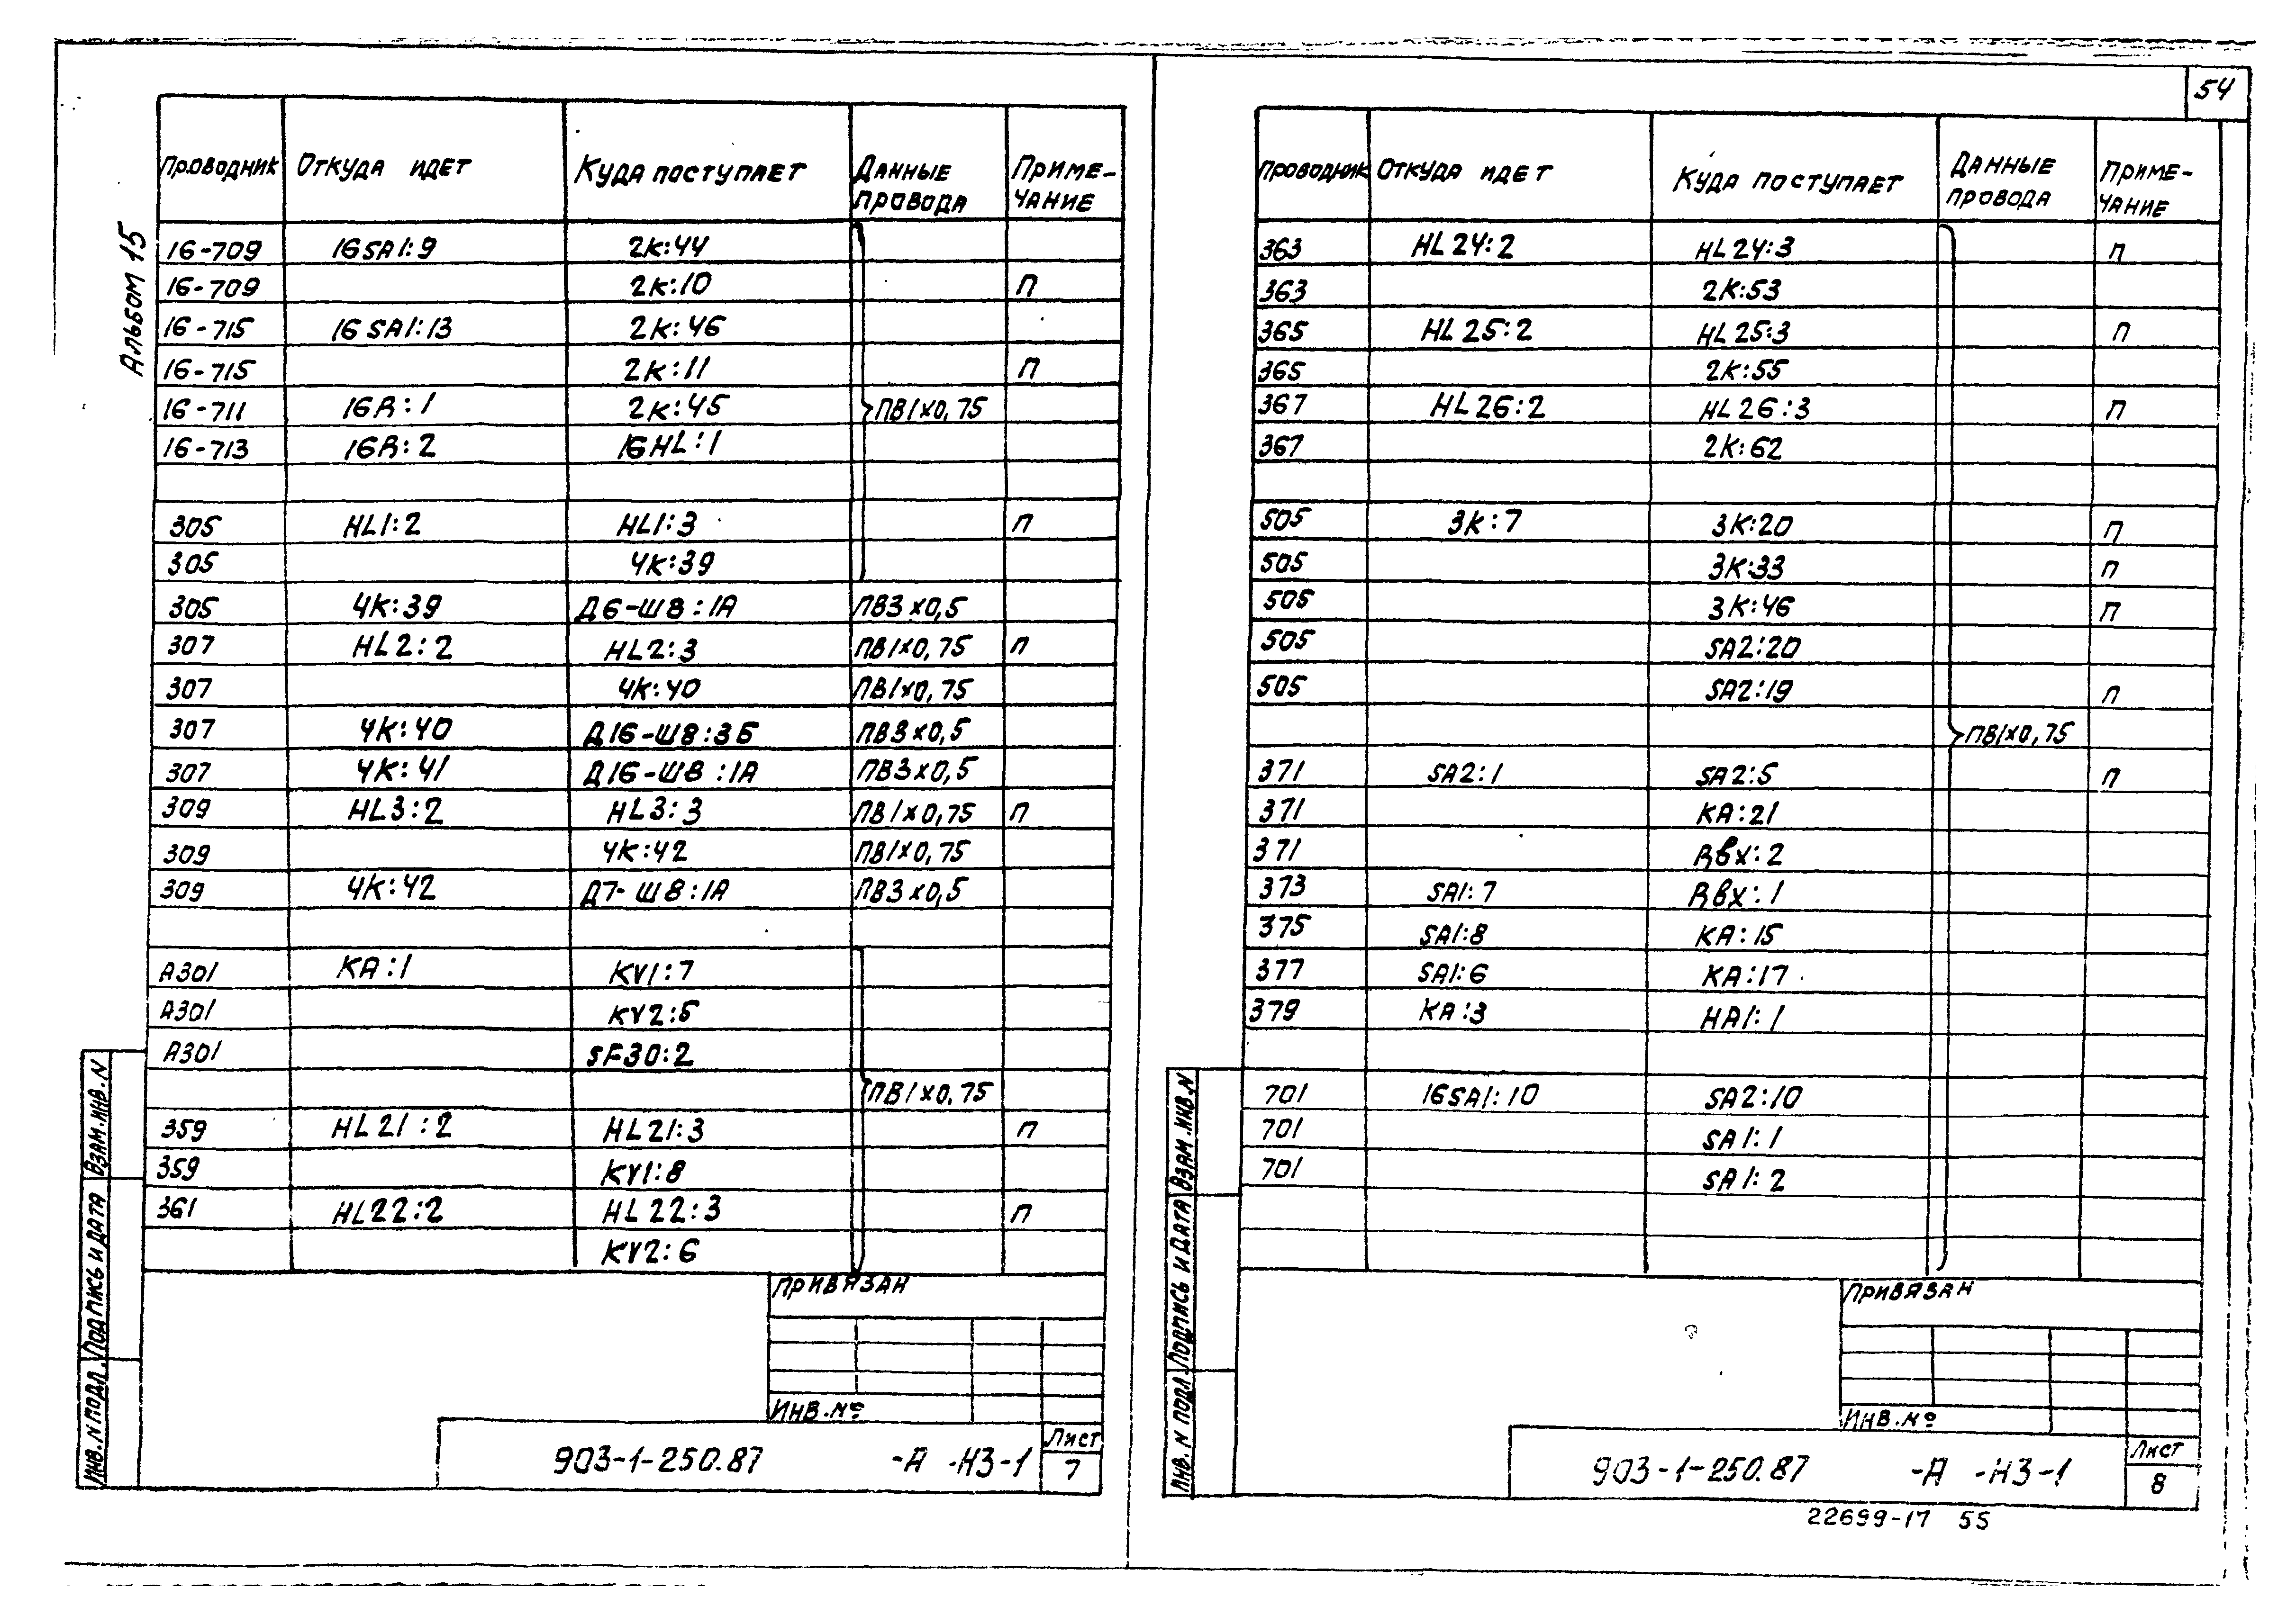 54
Альбом 15
Проводник Откуда идет Куда поступает Данные провода Приме-чание
16-709 16SA1:9 2К:44
16-709 2К:10 П
16-715 16SA1:13 2К:46
16-715 2К:11 П
16-711 16R:1 2К:45 ПВ1х0,75
16-713 16R:2 16HL:1
305 HL1:2 HL1:3 П
305 4К:39
305 4К:39 Д6-Ш8:1А ПВ3х0,5
307 HL2:2 HL2:3 ПВ1х0,75 П
307 4К:40 ПВ1х0,75
307 4К:40 Д16-Ш8:3Б ПВ3х0,5
307 4К:41 Д16-Ш8:1А ПВ3х0,5
309 HL3:2 HL3:3 ПВ1х0,75 П
309 4К:42 ПВ1х0,75
309 4К:42 Д7-Ш8:1А ПВ3х0,5
А301 КА:1 KV1:7
А301 KV2:5
А301 SF30:2
ПВ1х0,75
359 HL21:2 HL21:3 П
359 KV1:8
361 HL22:2 HL22:3 П
KV2:6
Привязан
Инв.№
903-1-250.87 -А -НЗ-1
Лист
7
Взам.инв.N
Подпись и дата
Инв.N подл.
Проводник Откуда идет Куда поступает Данные провода Приме-чание
363 HL24:2 HL24:3 П
363 2К:53
365 HL25:2 HL25:3 П
365 2К:55
367 HL26:2 HL26:3 П
367 2К:62
505 3К:7 3К:20 П
505 3К:33 П
505 3К:46 П
505 SA2:20
505 SA2:19 П
ПВ1х0,75
371 SA2:1 SA2:5 П
371 КА:21
371 Rвх:2
373 SA1:7 Rвх:1
375 SA1:8 КА:15
377 SA1:6 КА:17
379 КА:3 НА1:1
701 16SA1:10 SA2:10
701 SA1:1
701 SA1:2
Привязан
Инв.№
903-1-250.87 -А -НЗ-1
Лист
8
Взам.инв.N
Подпись и дата
Инв. N подл.
22699-17 55